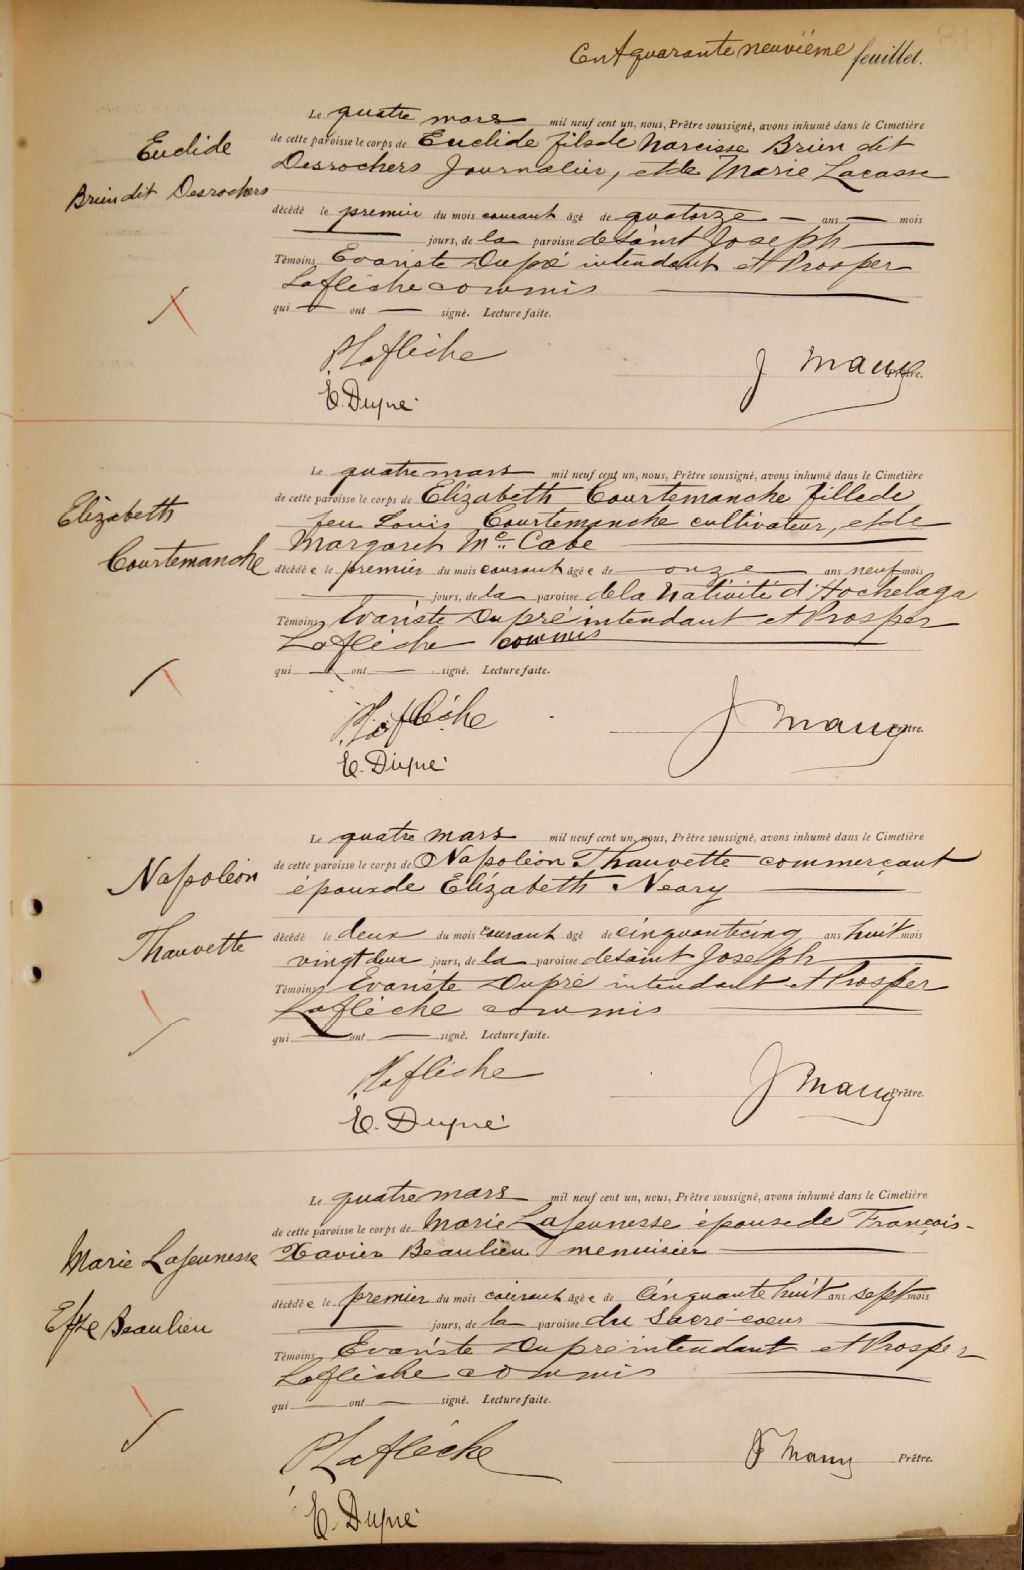 Cent quarante neuvième feuillet.
Euclide
Brien dit Desrochers
Le quatre mars mil neuf cent un, nous, Prêtre soussigné, avons inhumé dans le Cimetière
de cette paroisse le corps de Euclide fils de Narcisse Brien dit
Desrochers Journalier, et de Marie Lacasse
décédé le premier du mois courant âgé de quatorze — ans — mois
— jours, de la paroisse de Saint Joseph
Témoins Evariste Dupré intendant et Prosper
Laflèche commis
qui — ont — signé. Lecture faite.
P. Laflèche
J Maug Prêtre.
E. Dupré
Elizabeth
Courtemanche
Le quatre mars mil neuf cent un, nous, Prêtre soussigné, avons inhumé dans le Cimetière
de cette paroisse le corps de Elizabeth Courtemanche fille de
feu Louis Courtemanche cultivateur, et de
Margaret Mc Cabe
décédée le premier du mois courant âgée de onze ans neuf mois
jours, de la paroisse de la Nativité d'Hochelaga
Témoins Evariste Dupré intendant et Prosper
Laflèche commis
qui — ont — signé. Lecture faite.
P. Laflèche
J Maug Prêtre.
E. Dupré
Napoléon
Thauvette
Le quatre mars mil neuf cent un, nous, Prêtre soussigné, avons inhumé dans le Cimetière
de cette paroisse le corps de Napoléon Thauvette commerçant
époux de Elizabeth Neary
décédé le deux du mois courant âgé de cinquante cinq ans huit mois
vingt deux jours, de la paroisse de Saint Joseph
Témoins Evariste Dupré intendant et Prosper
Laflèche commis
qui — ont — signé. Lecture faite.
P. Laflèche
J Maug Prêtre.
E. Dupré
Marie Lajeunesse
Epse Beaulieu
Le quatre mars mil neuf cent un, nous, Prêtre soussigné, avons inhumé dans le Cimetière
de cette paroisse le corps de Marie Lajeunesse épouse de François-
Xavier Beaulieu menuisier
décédée le premier du mois courant âgée de cinquante huit ans sept mois
jours, de la paroisse du Sacré-coeur
Témoins Evariste Dupré intendant et Prosper
Laflèche commis
qui — ont — signé. Lecture faite.
P Laflèche
J Maug Prêtre.
E. Dupré